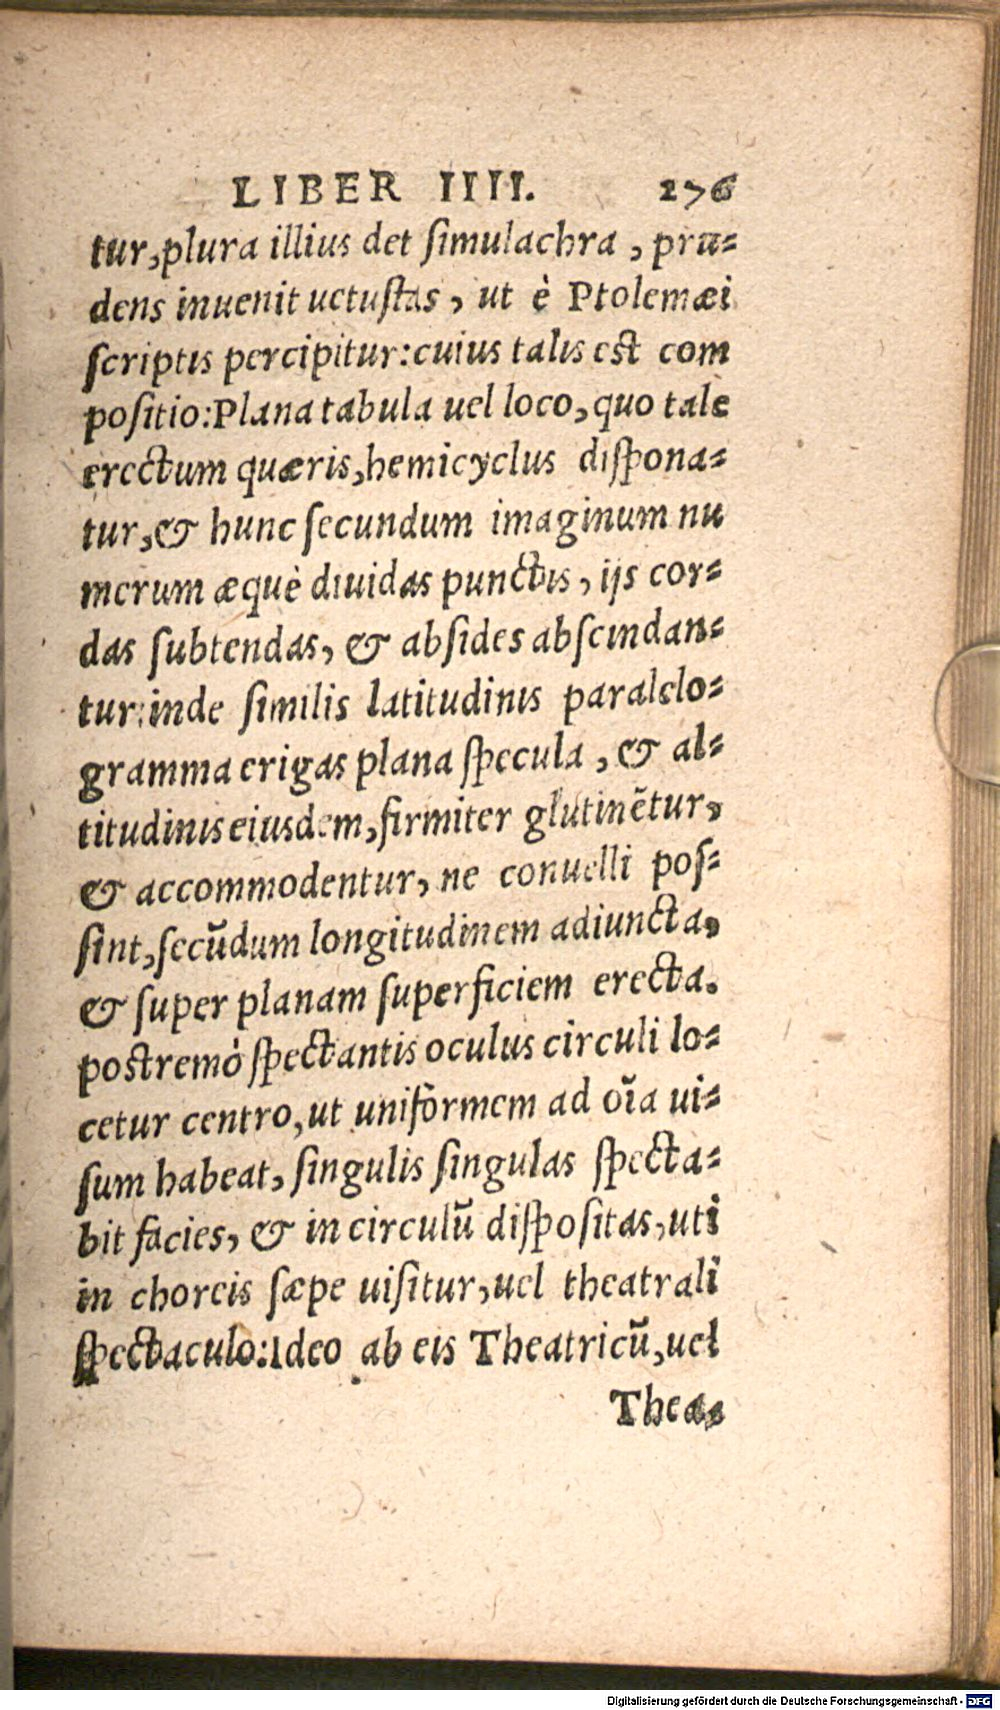 LIBER IIII. 276
tur, plura illius det ſimulachra, pru-
dens inuenit uetuſtas, ut è Ptolemæi
ſcriptis percipitur: cuius talis est com
poſitio: Plana tabula uel loco, quo tale
erectum quæris, hemicyclus diſpona-
tur, & hunc ſecundum imaginum nu
merum æquè diuidas punctis, ijs cor-
das ſubtendas, & abſides abſcindan-
tur: inde ſimilis latitudinis paralelo-
gramma erigas plana ſpecula, & al-
titudinis eiusdem, firmiter glutinētur,
& accommodentur, ne conuelli poſ-
ſint, ſecūdum longitudinem adiuncta,
& ſuper planam ſuperficiem erecta.
postremò ſpectantis oculus circuli lo-
cetur centro, ut uniformem ad oīa ui-
ſum habeat, ſingulis ſingulas ſpecta-
bit facies, & in circulū diſpoſitas, uti
in choreis ſæpe uiſitur, uel theatrali
ſpectaculo: Ideo ab eis Theatricū, uel
Thea-
Digitalisierung gefördert durch die Deutsche Forschungsgemeinschaft - DFG